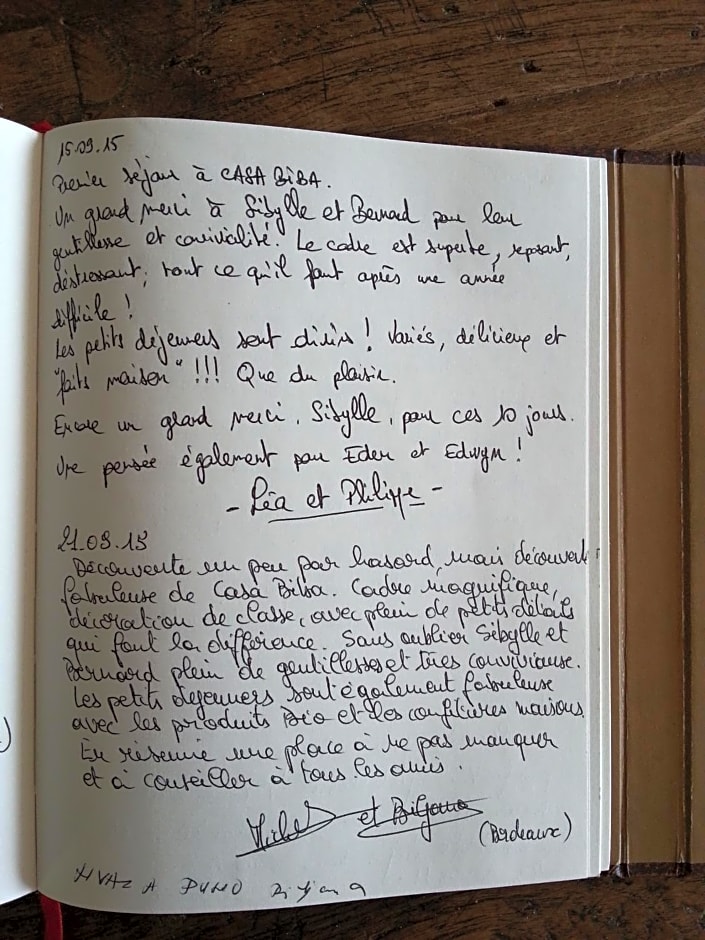 15.09.15
Premier séjour à CASA BIBA.
Un grand merci à Sibylle et Bernard pour leur
gentillesse et convivialité. Le cadre est superbe, reposant,
déstressant, tout ce qu'il faut après une année
difficile !
Les petits déjeuners sont divins ! Variés, délicieux et
"faits maison" !!! Que du plaisir.
Encore un grand merci, Sibylle, pour ces 10 jours.
Une pensée également pour Eden et Edwyn !
- Léa et Philippe -
21.09.15
Découverte un peu par hasard, mais découvert
fabuleuse de Casa Biba. Cadre magnifique,
décoration de classe, avec plein de petits détails
qui font la différence. Sans oublier Sibylle et
Bernard plein de gentillesses et très conviviause.
Les petits dejeuners sont également fabuleuse
avec les produits Bio et les confitures maisons.
En résumé une place à ne pas manquer
et à conseiller à tous les amis.
Michel et
(Bordeaux)
HVALA PUNO